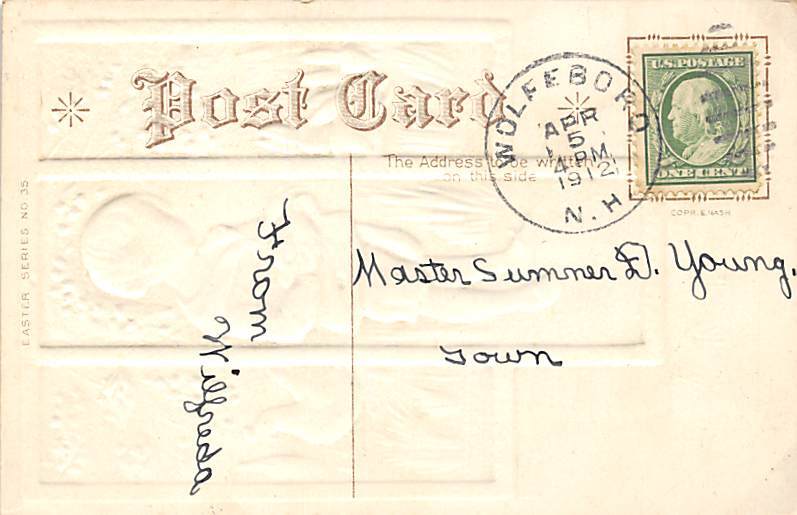 Post Card
The Address to be written
on this side
WOLFEBORO
APR
5
4 PM
1912
N.H.
U.S. POSTAGE
ONE CENT
COPR. E. NASH
EASTER SERIES NO 35
Master Sumner D. Young.
Town
From
Wilfred